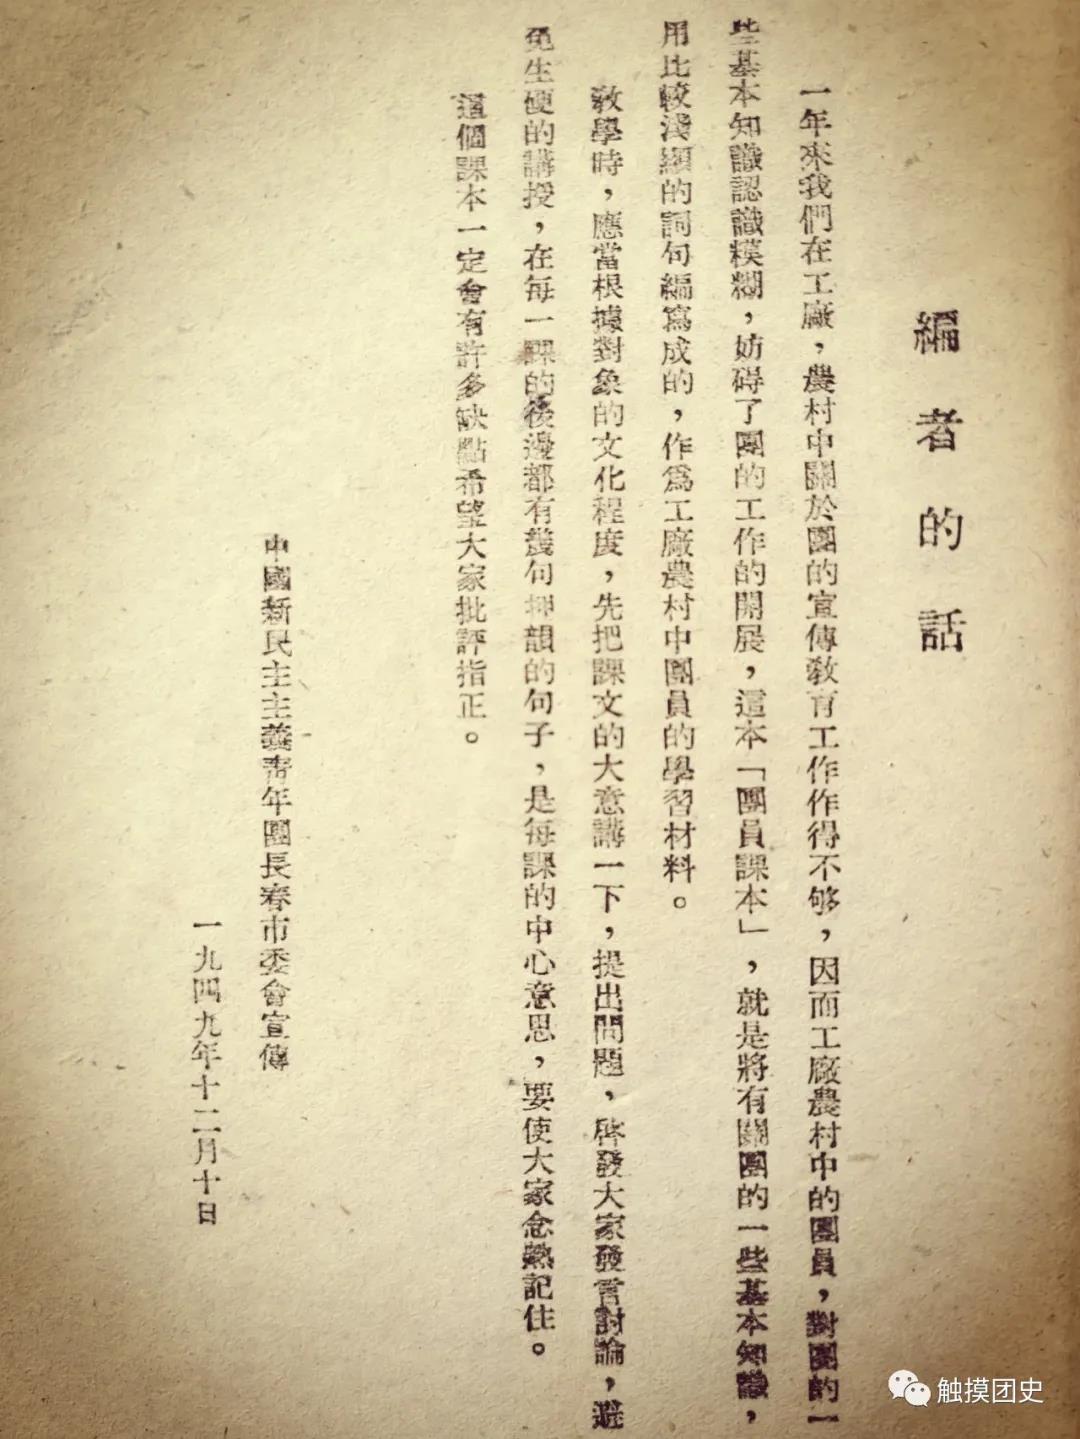 編者的話
一年來我們在工廠，農村中關於團的宣傳教育工作作得不够，因而工廠農村中的團員，對團的一
些基本知識認識糢糊，妨碍了團的工作的開展，這本「團員課本」，就是將有關團的一些基本知識，
用比較淺顯的詞句編寫成的，作爲工廠農村中團員的學習材料。
教學時，應當根據對象的文化程度，先把課文的大意講一下，提出問題，啓發大家發言討論，避
免生硬的講授，在每一課的後邊都有幾句押韻的句子，是每課的中心意思，要使大家念熟記住。
這個課本一定會有許多缺點希望大家批評指正。
中國新民主主義青年團長春市委會宣傳
一九四九年十二月十日
触摸团史